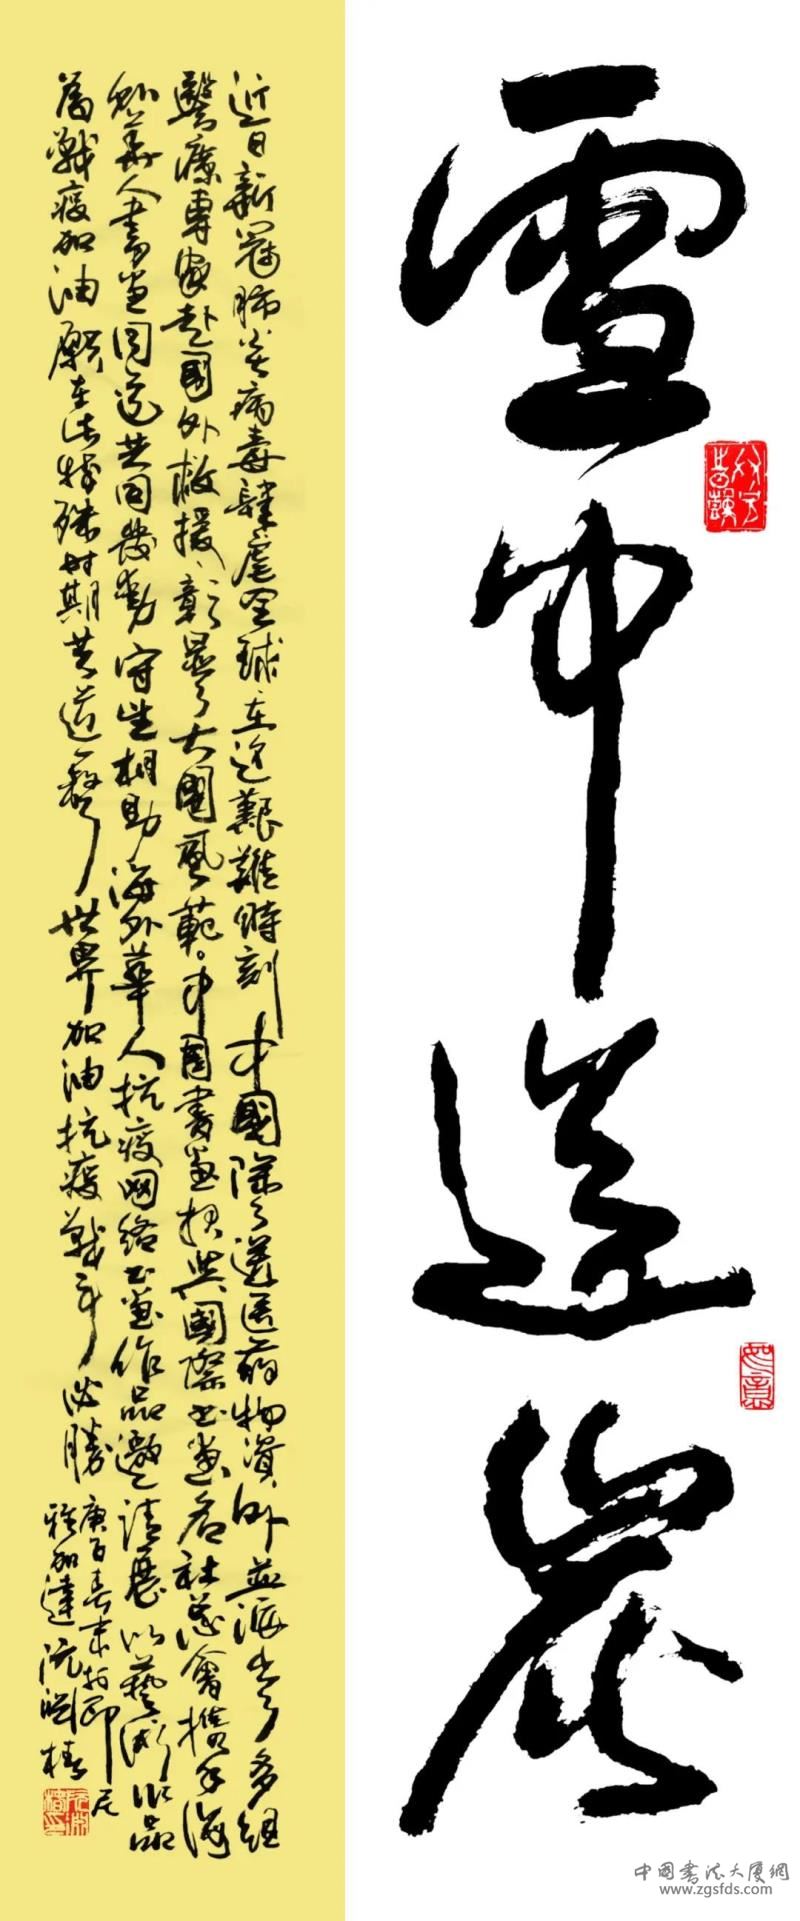 雪中送炭
如意
近日新冠肺炎病毒肆虐全球在这艰难時刻中國除了運送医药物资外並派出了多组
醫療專家赴國外救援彰显了大國風範。中国書画报與國際书画名社薈會携手海
外華人書画同道共同發動守望相助海外華人抗疫网络书画作品邀请展以藝術作品
為戰疫加油願在此特殊时期共道一声世界加油抗疫戰争必勝
庚子春末於印尼
雅加達阮渊椿
中國書法大厦網
www.zgsfds.com